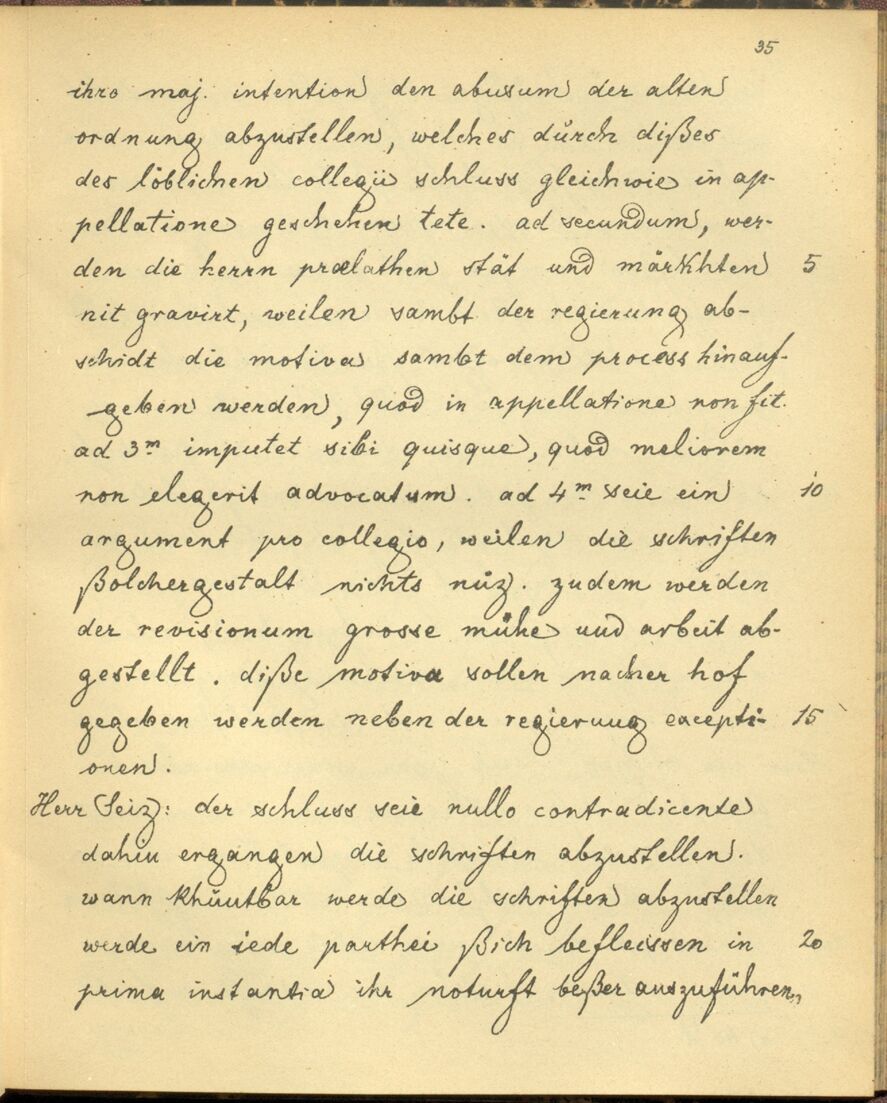 35
ihro maj. intention den abusum der alten
ordnung abzustellen, welches durch dißes
des löblichen collegii schluss gleichwie in ap-
pellatione geschehen tete. ad secundum, wer-
den die herrn prælathen stät und märkhten 5
nit gravirt, weilen sambt der regierung ab-
schidt die motiva sambt dem process hinauf-
geben werden, quod in appellatione non fit.
ad 3m imputet sibi quisque, quod meliorem
non elegerit advocatum. ad 4m seie ein 10
argument pro collegio, weilen die schriften
ßolchergestalt nichts nüz. zudem werden
der revisionum grosse mühe und arbeit ab-
gestellt. diße motiva sollen nacher hof
gegeben werden neben der regierung excepti- 15
onen.
Herr Seiz: der schluss seie nullo contradicente
dahin ergangen die schriften abzustellen.
wann khüntbar werde die schriften abzustellen
werde ein iede parthei ßich befleissen in 20
prima instantia ihr noturft beßer auszuführen,,